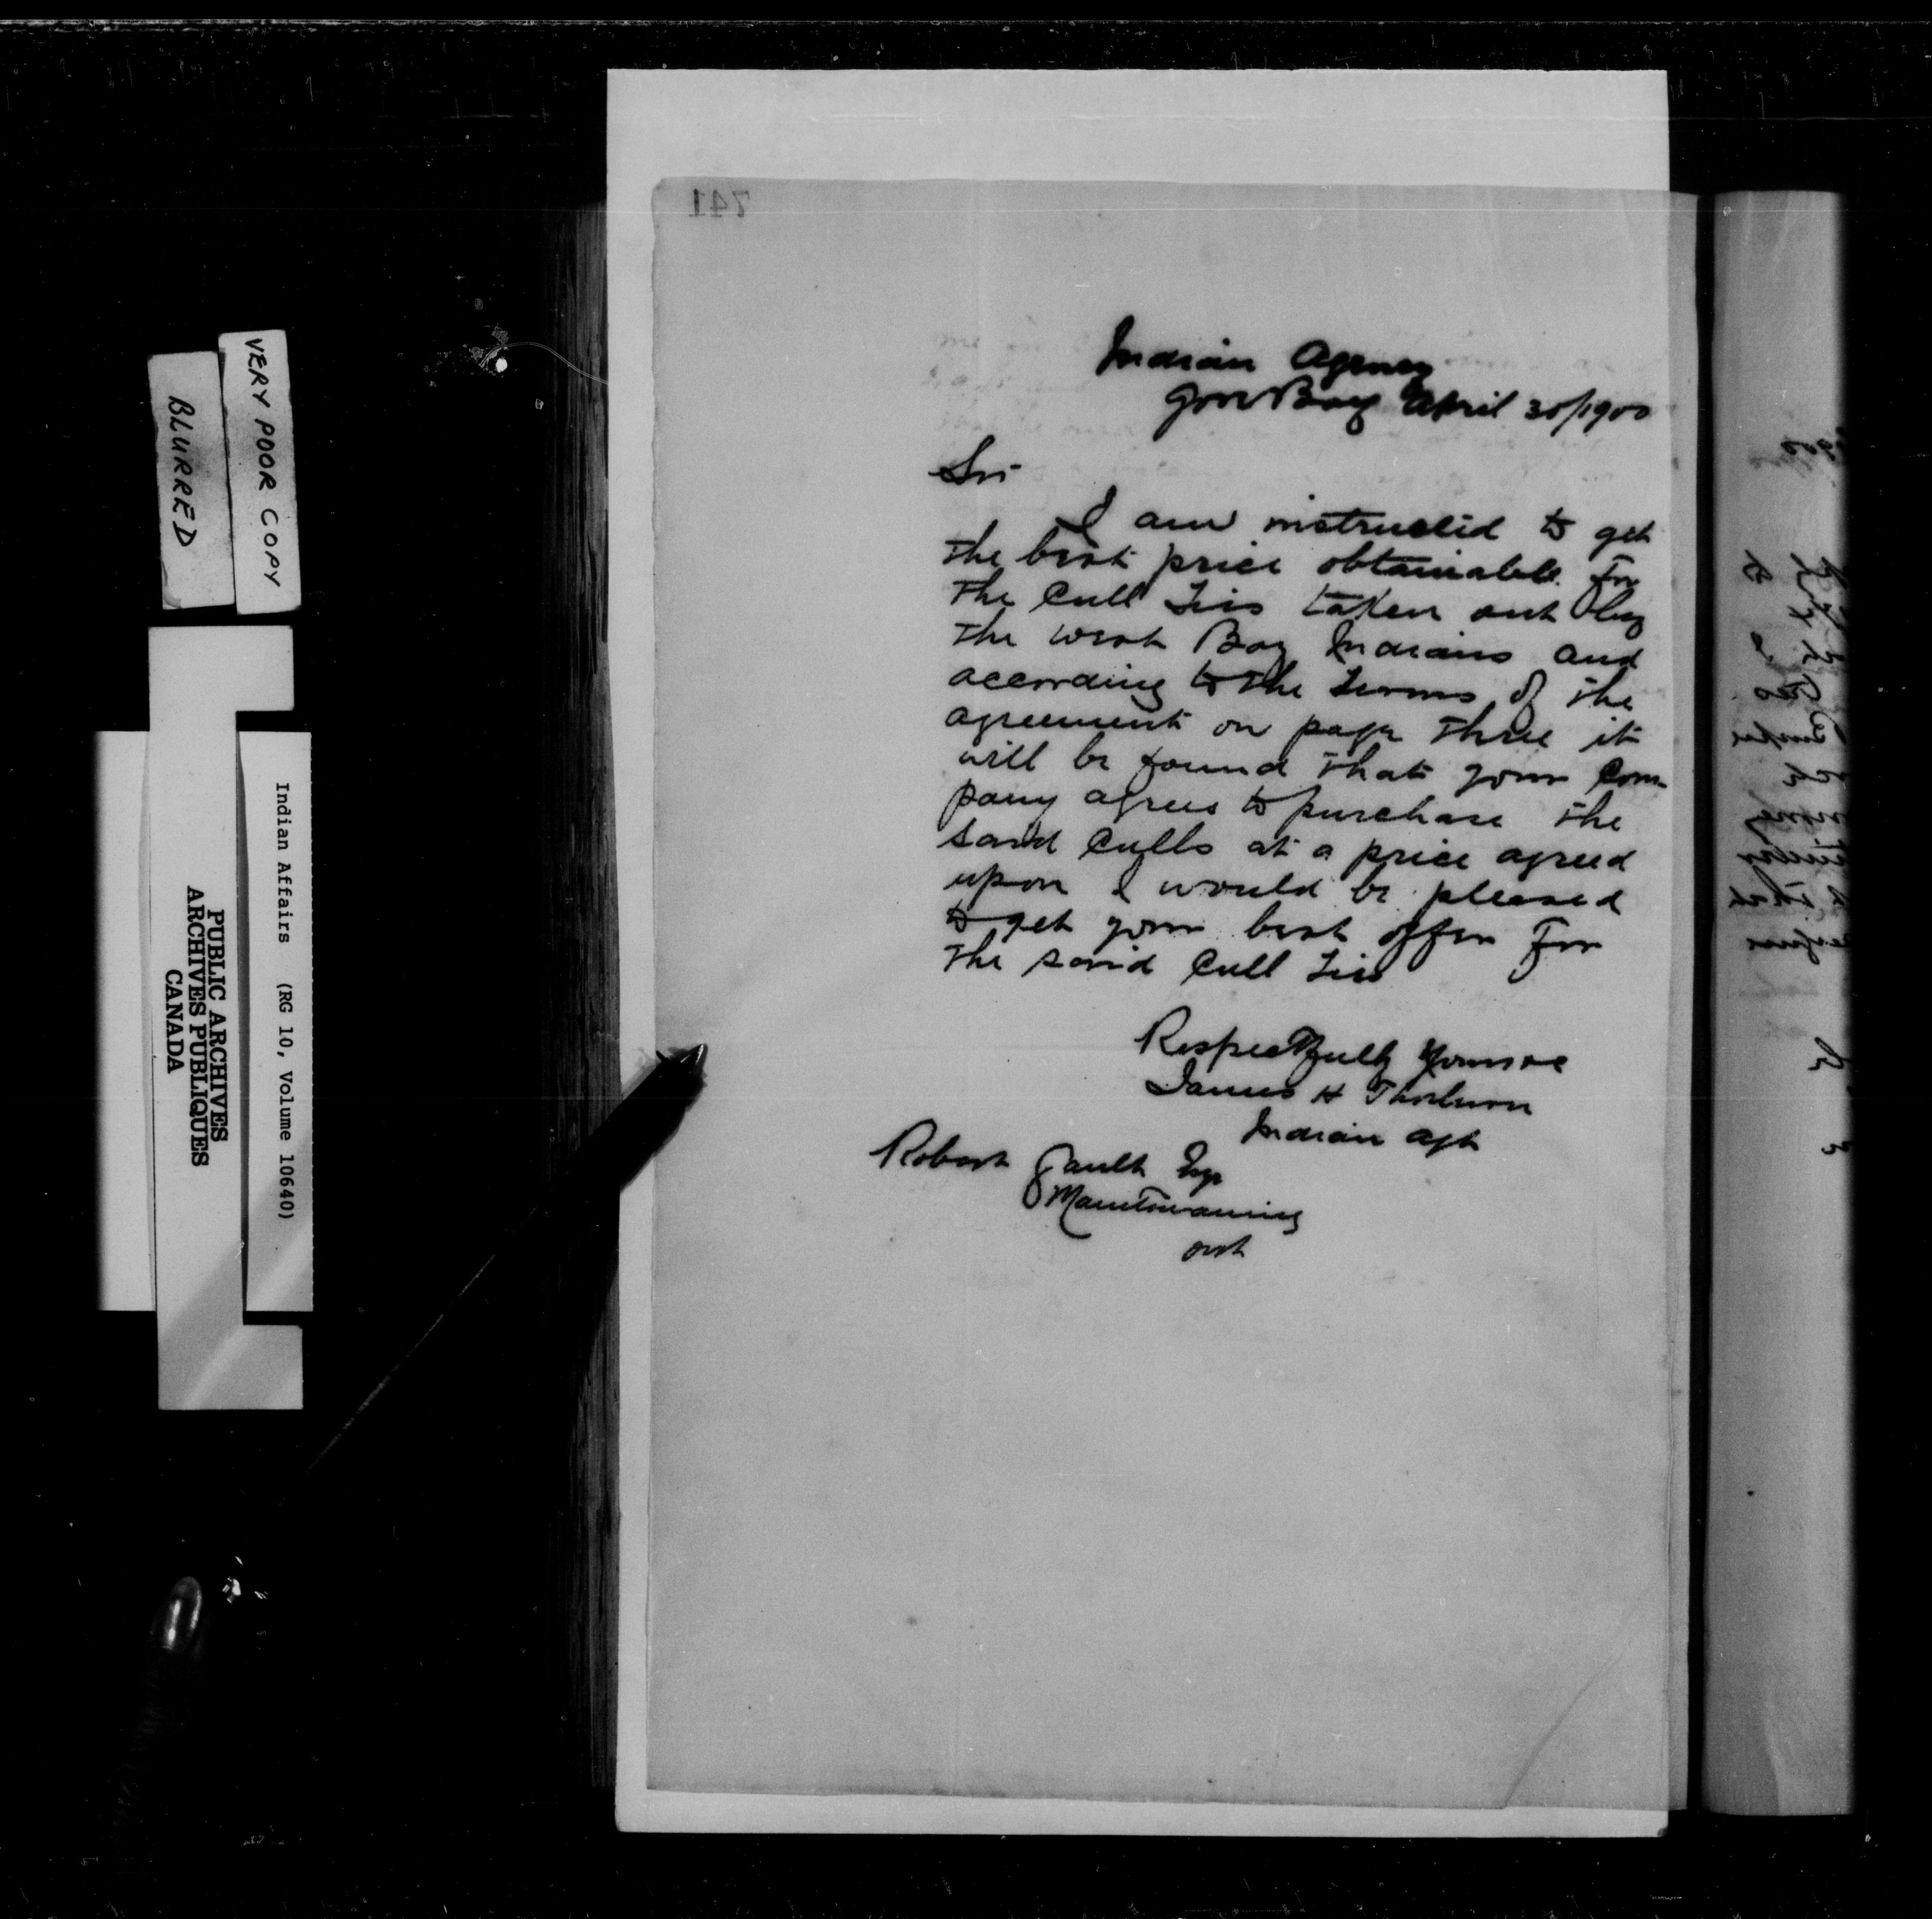 741
Indian Agency
Gore Bay April 30/1900
Sir
I am instructed to get
the best price obtainable for
the Cull Ties taken out by
the West Bay Indians and
according to the terms of the
agreement on page three it
will be found that your Com-
pany agrees to purchase the
said Culls at a price agreed
upon I would be pleased
to get your best offer for
the said Cull Ties
Respectfully Yours &c
James H Thorburn
Indian Agt
Robert Gault Esqr
Manitowaning
Ont
VERY POOR COPY
BLURRED
Indian Affairs (RG 10, Volume 10640)
PUBLIC ARCHIVES
ARCHIVES PUBLIQUES
CANADA